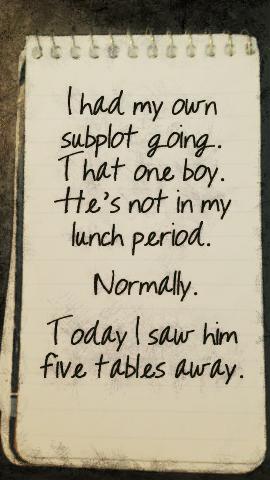 I had my own
subplot going.
That one boy.
He's not in my
lunch period.
Normally.
Today I saw him
five tables away.